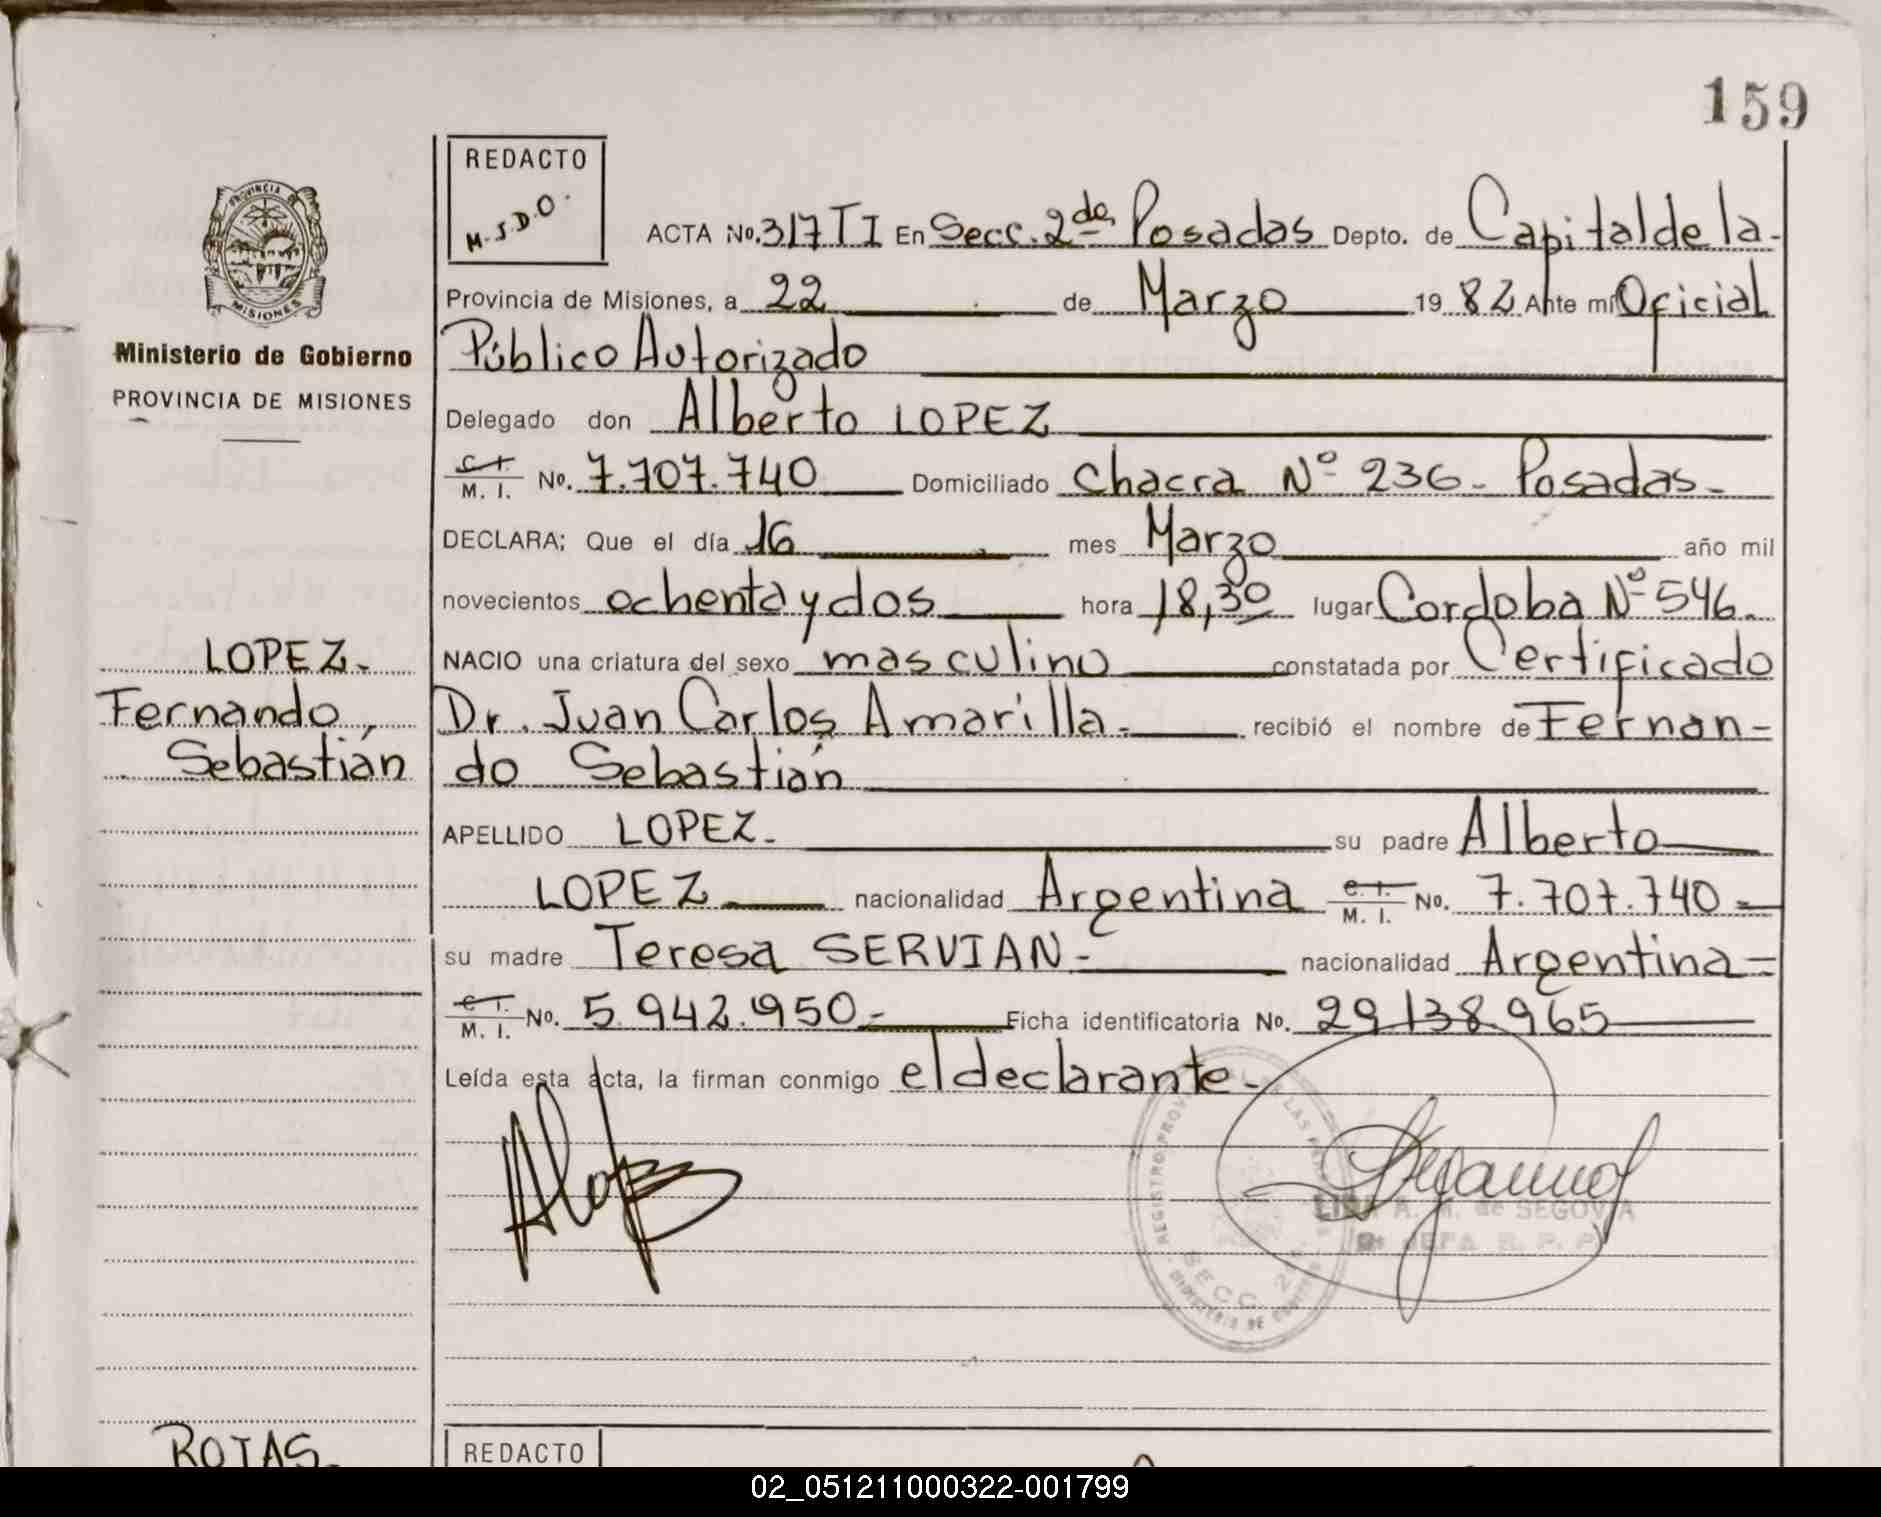 159
REDACTO
M.S.D.O.
PROVINCIA DE
MISIONES
Ministerio de Gobierno
PROVINCIA DE MISIONES
ACTA No. 317 TI En Secc. 2da Posadas Depto. de Capital de la-
Provincia de Misiones, a 22 de Marzo 1982 Ante mí Oficial
Público Autorizado
Delegado don Alberto LOPEZ
C. I. M. I. No. 7.707.740 Domiciliado Chacra Nº 236- Posadas-
DECLARA; Que el día 16 mes Marzo año mil
novecientos ochenta y dos hora 18,30 lugar Cordoba Nº 546.
NACIO una criatura del sexo masculino constatada por Certificado
Dr. Juan Carlos Amarilla.- recibió el nombre de Fernan-
do Sebastián
APELLIDO LOPEZ.- su padre Alberto
LOPEZ nacionalidad Argentina C. I. M. I. No. 7.707.740-
su madre Teresa SERVIAN- nacionalidad Argentina-
C. I. M. I. No. 5.942.950.- Ficha identificatoria No. 29.138.965
Leída esta acta, la firman conmigo el declarante-
LOPEZ-
Fernando,
Sebastián
A. M. de SEGOVIA
SECC. 2da.
ROJAS-
REDACTO
02_051211000322-001799